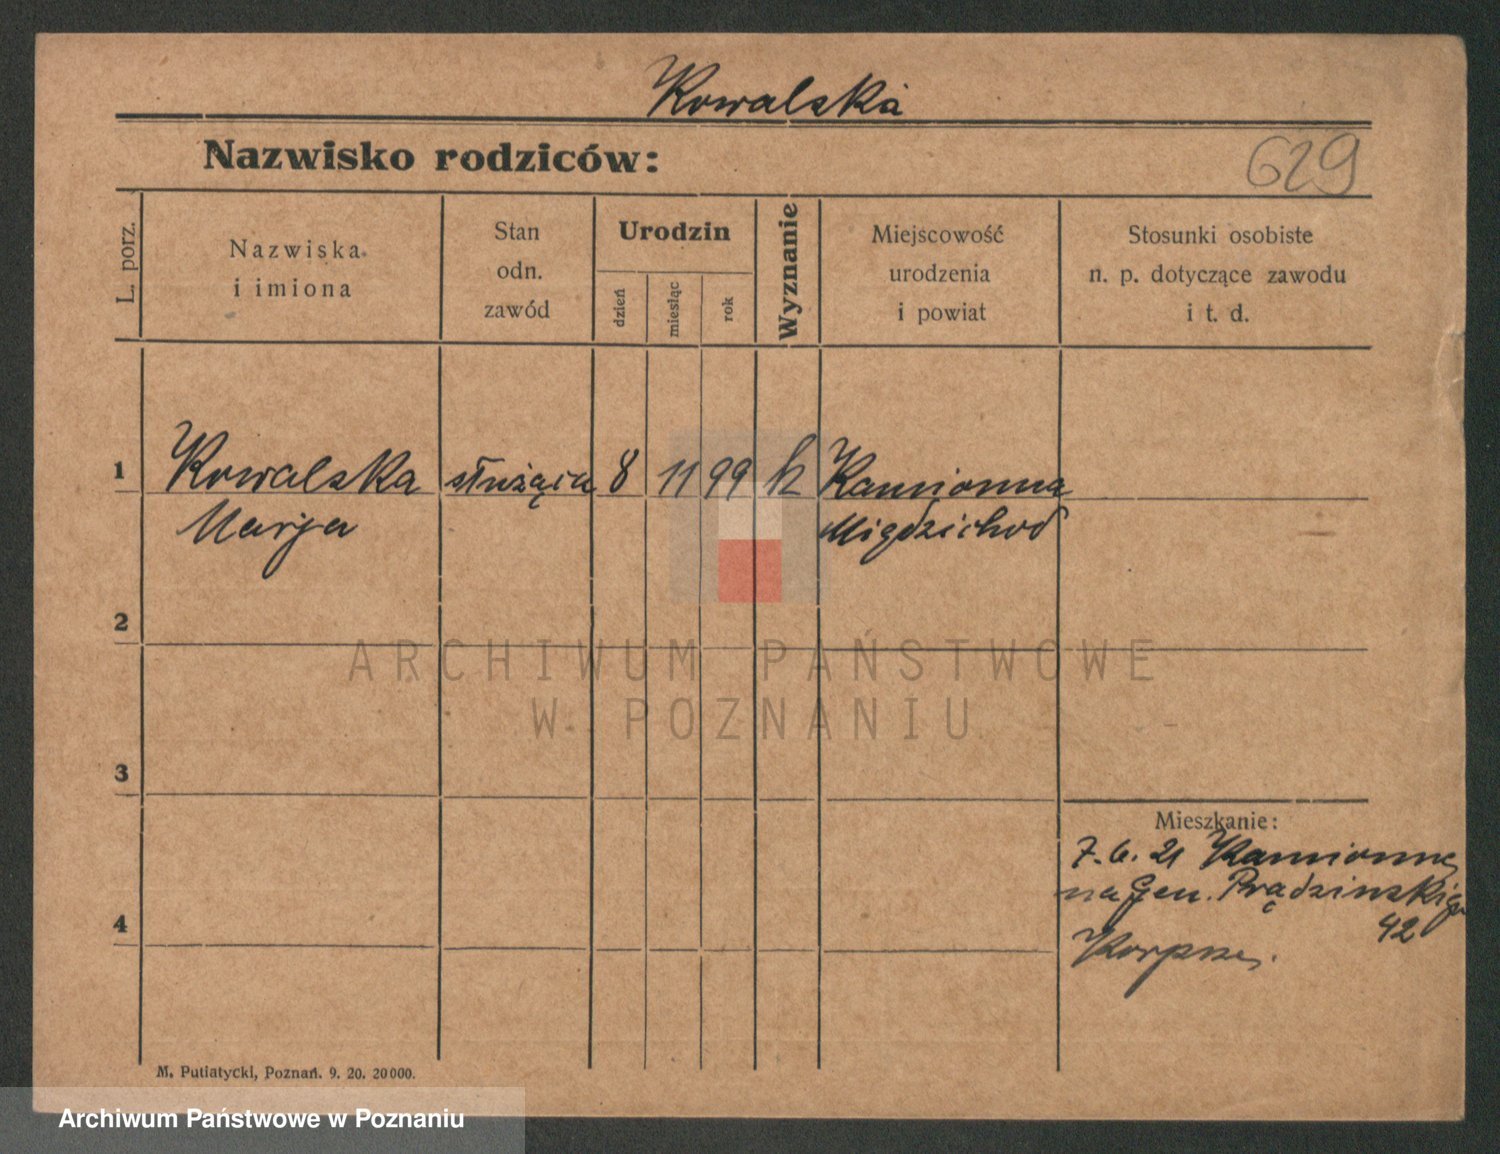 Kowalska
Nazwisko rodziców:
629
L. porz.
Nazwiska
i imiona
Stan
odn.
zawód
Urodzin
dzień
miesiąc
rok
Wyznanie
Miejscowość
urodzenia
i powiat
Stosunki osobiste
n. p. dotyczące zawodu
i t. d.
1
Kowalska służąca 8 11 99 k Kamionna
Marja Migdzichod
2
ARCHIWUM PAŃSTWOWE
W POZNANIU
3
Mieszkanie:
7. 6. 21 Kamionny
na Gen. Prądzinskiego
42
4
M. Putiatycki, Poznań. 9. 20. 20000.
Archiwum Państwowe w Poznaniu